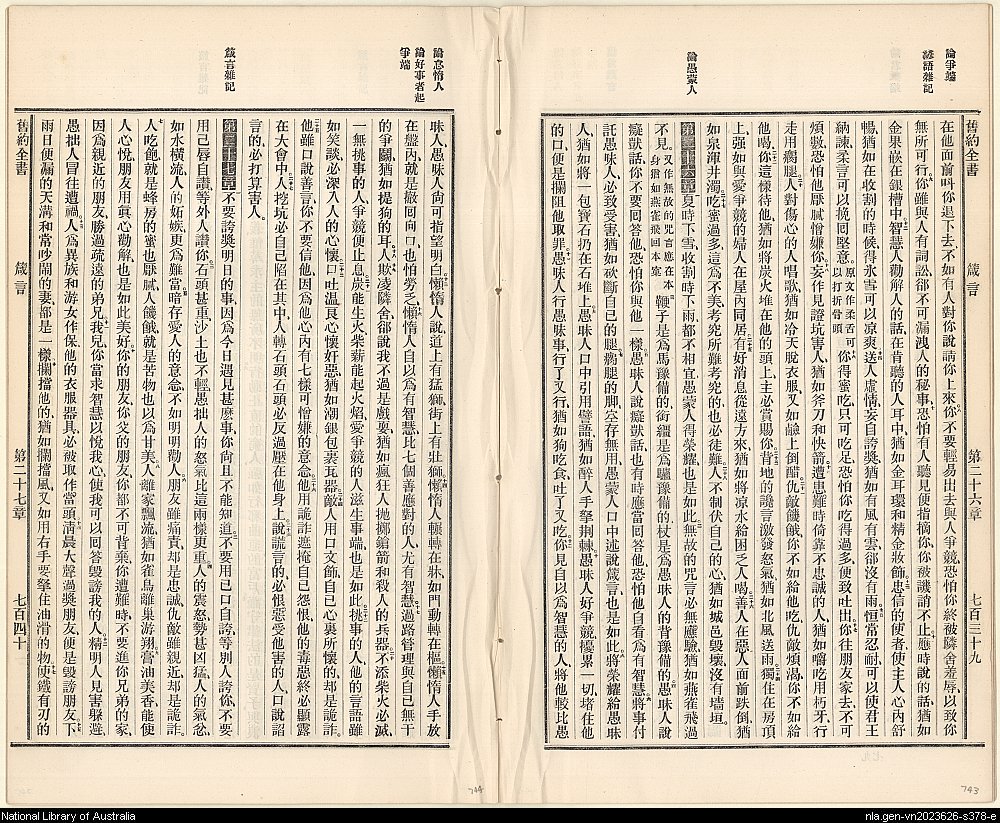 論爭端
諺語雜記
論愚蒙人
舊約全書 箴言 第二十六章 七百三十九
在他面前叫你退下去、不如有人對你說請你上來、你不要輕易出去與人爭競、恐怕你終被隣舍羞辱、以致你
無所可行、你雖與人有詞訟、卻不可漏洩人的秘事、恐怕有人聽見便指摘你、你被譏誚不止、應時說的話猶如
金果嵌在銀槽中、智慧人勸解人的話、在肯聽的人耳中、猶如金耳環和精金妝飾、忠信的使者、使主人心內舒
暢、猶如在收割的時候、得氷雪可以凉爽、送人虛情、妄自誇獎、猶如有風有雲卻沒有雨、恒常忍耐、可以使君王
納諫、柔言可以挽回堅意、原文作柔舌可以打折骨頭 你得蜜吃、只可吃足、恐怕你吃得過多、便致吐出、你往朋友家去、不可
煩數、恐怕他厭膩憎嫌你、妄作見證坑害人、猶如斧刃和快箭、遭患難時、倚靠不忠誠的人、猶如嚼吃用朽牙、行
走用癎腿、人對傷心的人唱歌、猶如冷天脫衣服、又如鹼上倒醋、仇敵饑餓、你不如給他吃、仇敵煩渴、你不如給
他喝、你這樣待他、猶如將炭火堆在他的頭上、主必賞賜你、背地的讒言激發怒氣、猶如北風送雨、獨住在房頂
上、强如與愛爭競的婦人在屋內同居、有好消息從遠方來、猶如將凉水給困乏人喝、善人在惡人面前跌倒、猶
如泉渾井濁、吃蜜過多、這爲不美、考究所難考究的、也必徒難、人不制伏自己的心、猶如城邑毀壞沒有墻垣、
第二十六章夏時下雪、收割時下雨、都不相宜、愚蒙人得榮耀也是如此、無故的咒言必無應驗、猶如燕雀飛過
不見、又作無故的咒言應在本身猶如燕雀飛回本窠 鞭子是爲馬豫備的、銜繮是爲驢豫備的、杖是爲愚昧人的背豫備的、愚昧人說
癡獃話、你不要回答他、恐怕你與他一樣、愚昧人說癡獃話、也有時應當回答他、恐怕他自看爲有智慧、將事付
託愚昧人、必吃害、猶如砍斷自己的腿、癎腿的脚空存無用、愚蒙人口中述說箴言、也是如此、將榮耀給愚昧
人、猶如將一包寶石扔在石堆上、愚昧人口中引用譬語、猶如醉人手拏荆棘、愚昧人好爭競、擾累一切、堵住他
的口、便是攔阻他取罪、愚昧人行愚昧事、行了又行、猶如狗吃食、吐了又吃、你見自以爲智慧的人、將他較比愚
743
論怠惰人
論好事者起爭端
箴言雜記
昧人、愚昧人尙可指望明白、懶惰人說、道上有猛獅、街上有壯獅、懶惰人輾轉在牀、如門動轉在樞、懶惰人手放
在盤內、就是撤回向口、也怕勞乏、懶惰人自以爲有智慧、比七個善應對的人尤有智慧、過路管理與自己無干
的爭鬭、猶如提狗的耳、人欺凌隣舍、卻說我不過是戲耍、猶如瘋狂人拋擲鎗箭和殺人的兵器、不添柴火必滅、
一無挑事的人、爭競便止息、炭能生火、柴薪能起火焰、愛爭競的人滋生事端也是如此、挑事的人、他的言語雖
如笑談、必深入人的心懷、口吐溫良、心懷奸惡、猶如潮銀包裹瓦器、敵人用口文飾、自己心裏所懷的却是詭詐、
他雖口說善言、你不要信他、因爲他心內有七樣可憎嫌的意念、他用詭詐遮掩自己怨恨、他的毒惡終必顯露
在大會中、人挖坑必自己陷在其中、人轉石頭、石頭必反過壓在他身上、說謊言的必恨惡受他害的人、口說諂
言的必打算害人、
第二十七章不要誇獎明日的事、因爲今日遇見甚麽事、你尙且不能知道、不要用己口自誇、等別人誇你、不要
用己唇自讚、等外人讚你、石頭甚重、沙土也不輕、愚拙人的怒氣比這兩樣更重、人的震怒勢甚凶猛、人的氣忿
如水橫流、人的妬嫉更爲難當、暗存愛人的意念、不如明明勸人、朋友雖痛責却是出忠誠、仇敵雖親近却是詭詐、
人吃飽就是蜂房的蜜也厭膩、人饑餓就是苦物也以爲甘美、人離家飄流、猶如雀鳥離巢游翔、膏油美香能使
人心悅、朋友用眞心勸解也是如此美好、你的朋友、你父的朋友、你都不可背棄、你遭難時、不要進你兄弟的家、
因爲親近的朋友勝過疏遠的弟兄、我兒、你當求智慧、以悅我心、使我可以回答毀謗我的人、精明人見害躱避、
愚拙人冒往遭禍、人爲異族和游女作保、他的衣服器具必被取作當頭、淸晨大聲過獎朋友、便是毀謗朋友、下
雨日便漏的天溝、和常吵鬧的妻、都是一樣、攔擋他的、猶如攔擋風、又如用右手要拏住油滑的物、使鐵有刃的
舊約全書 箴言 第二十七章 七百四十
744
National Library of Australia
nla.gen-vn2023626-s378-e